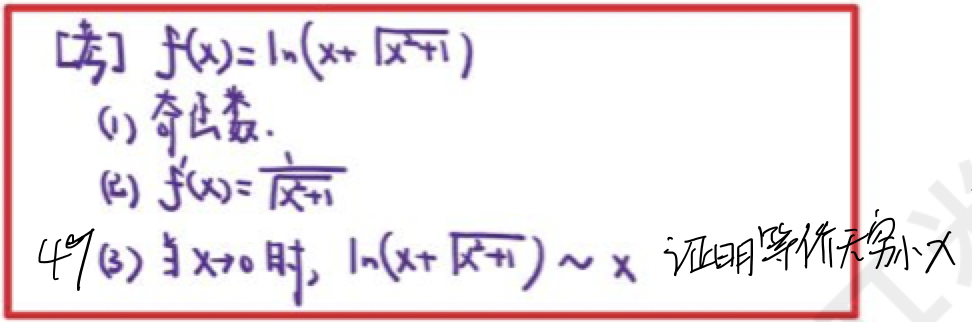 [考] f(x)=ln(x+√(x²+1))
(1) 奇函数.
(2) f'(x)=1/√(x²+1)
49 (3) 当x→0时, ln(x+√(x²+1)) ~ x 证明等价无穷小x